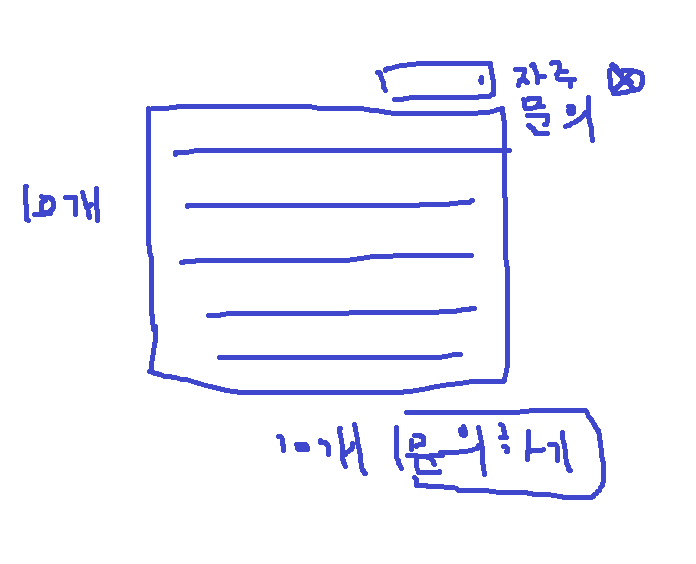 자주
문의
10개
10개 문의하기